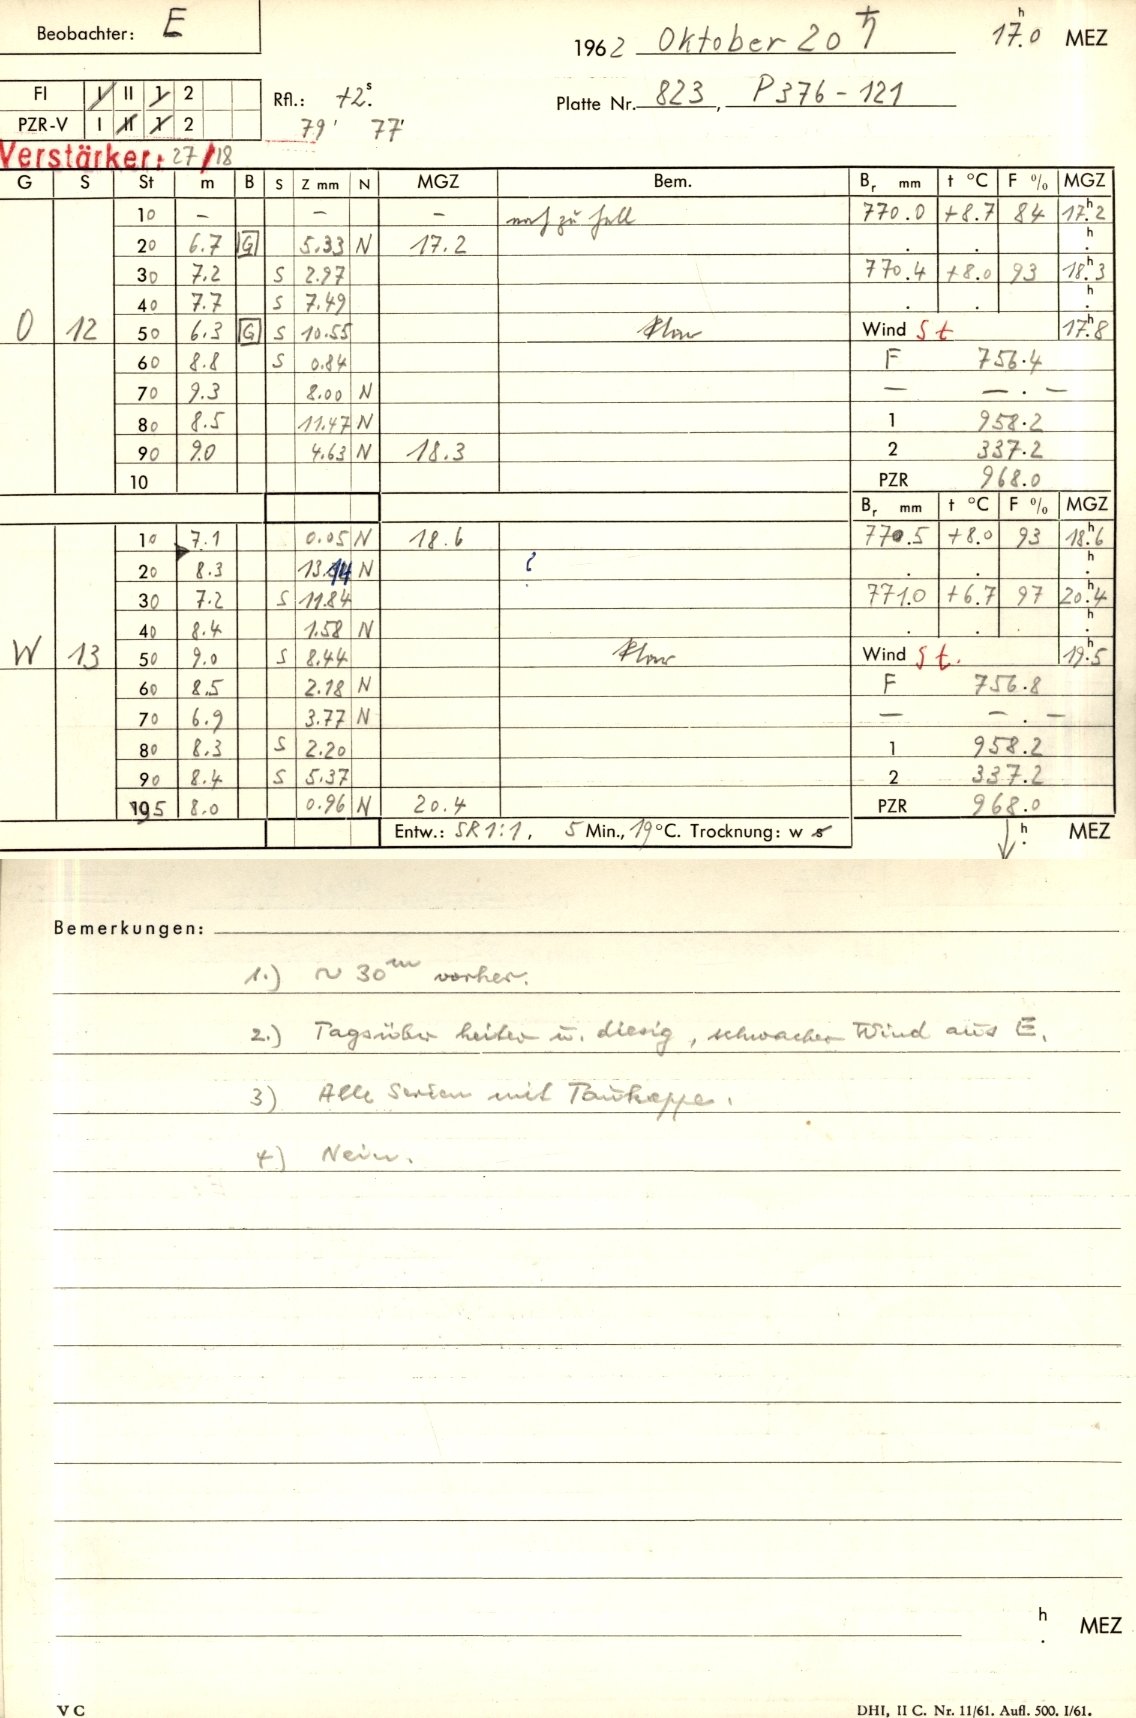 Beobachter: E
1962 Oktober 20 ♄ 17.0 h MEZ
FI I II 1 2
Rfl.: +2.s
Platte Nr. 823, P376-121
PZR-V I II 1 2
79' 77'
Verstärker: 27/18
G S St m B S Z mm N MGZ Bem. Br mm t °C F % MGZ
10 – – – noch zu hell 770.0 +8.7 84 17.h2
20 6.7 G 5.33 N 17.2 . . h.
30 7.2 S 2.97 770.4 +8.0 93 18.h3
40 7.7 S 7.49 . . h.
O 12 50 6.3 G S 10.55 klar Wind St 17.h8
60 8.8 S 0.84 F 756.4
70 9.3 8.00 N — — . —
80 8.5 11.47 N 1 958.2
90 9.0 4.63 N 18.3 2 337.2
10 PZR 968.0
Br mm t °C F % MGZ
10 7.1 0.05 N 18.6 770.5 +8.0 93 18.h6
20 8.3 13.14 N ? . . h.
30 7.2 S 11.84 771.0 +6.7 97 20.h4
40 8.4 1.58 N . . h.
W 13 50 9.0 S 8.44 klar Wind St. 19.h5
60 8.5 2.18 N F 756.8
70 6.9 3.77 N — — . —
80 8.3 S 2.20 1 958.2
90 8.4 S 5.37 2 337.2
195 8.0 0.96 N 20.4 PZR 968.0
Entw.: SR 1:1, 5 Min., 19°C. Trocknung: w s h. MEZ
Bemerkungen:
1.) ~ 30m vorher.
2.) Tagsüber heiter u. diesig, schwacher Wind aus E.
3) Alle Serien mit Taukappe.
4) Nein.
h. MEZ
VC
DHI, II C. Nr. 11/61. Aufl. 500. I/61.